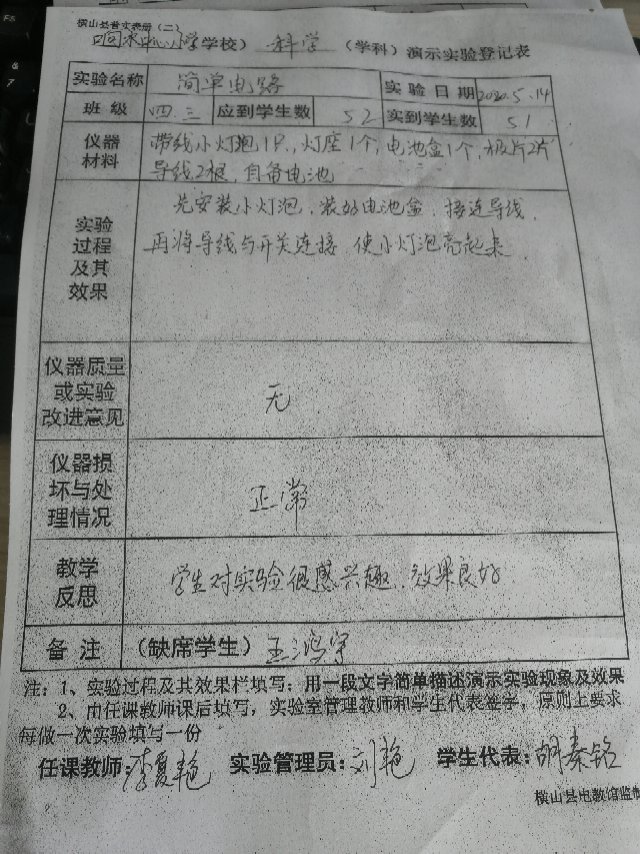 横山县普实表册（二）
响水中心小学学校）科学（学科）演示实验登记表
实验名称 简单电路 实验日期 2020.5.14
班级 四.三 应到学生数 52 实到学生数 51
仪器材料 带线小灯泡1只，灯座1个，电池盒1个，极片2片
导线2根，自备电池
实验过程及其效果
先安装小灯泡，装好电池盒，接连导线，
再将导线与开关连接，使小灯泡亮起来。
仪器质量或实验改进意见 无
仪器损坏与处理情况 正常
教学反思 学生对实验很感兴趣，效果良好
备注（缺席学生）王
注：1、实验过程及其效果栏填写：用一段文字简单描述演示实验现象及效果
2、由任课教师课后填写，实验室管理教师和学生代表签字，原则上要求
每做一次实验填写一份
任课教师：李夏艳 实验管理员：刘艳 学生代表：胡秦铭
横山县电教馆监制